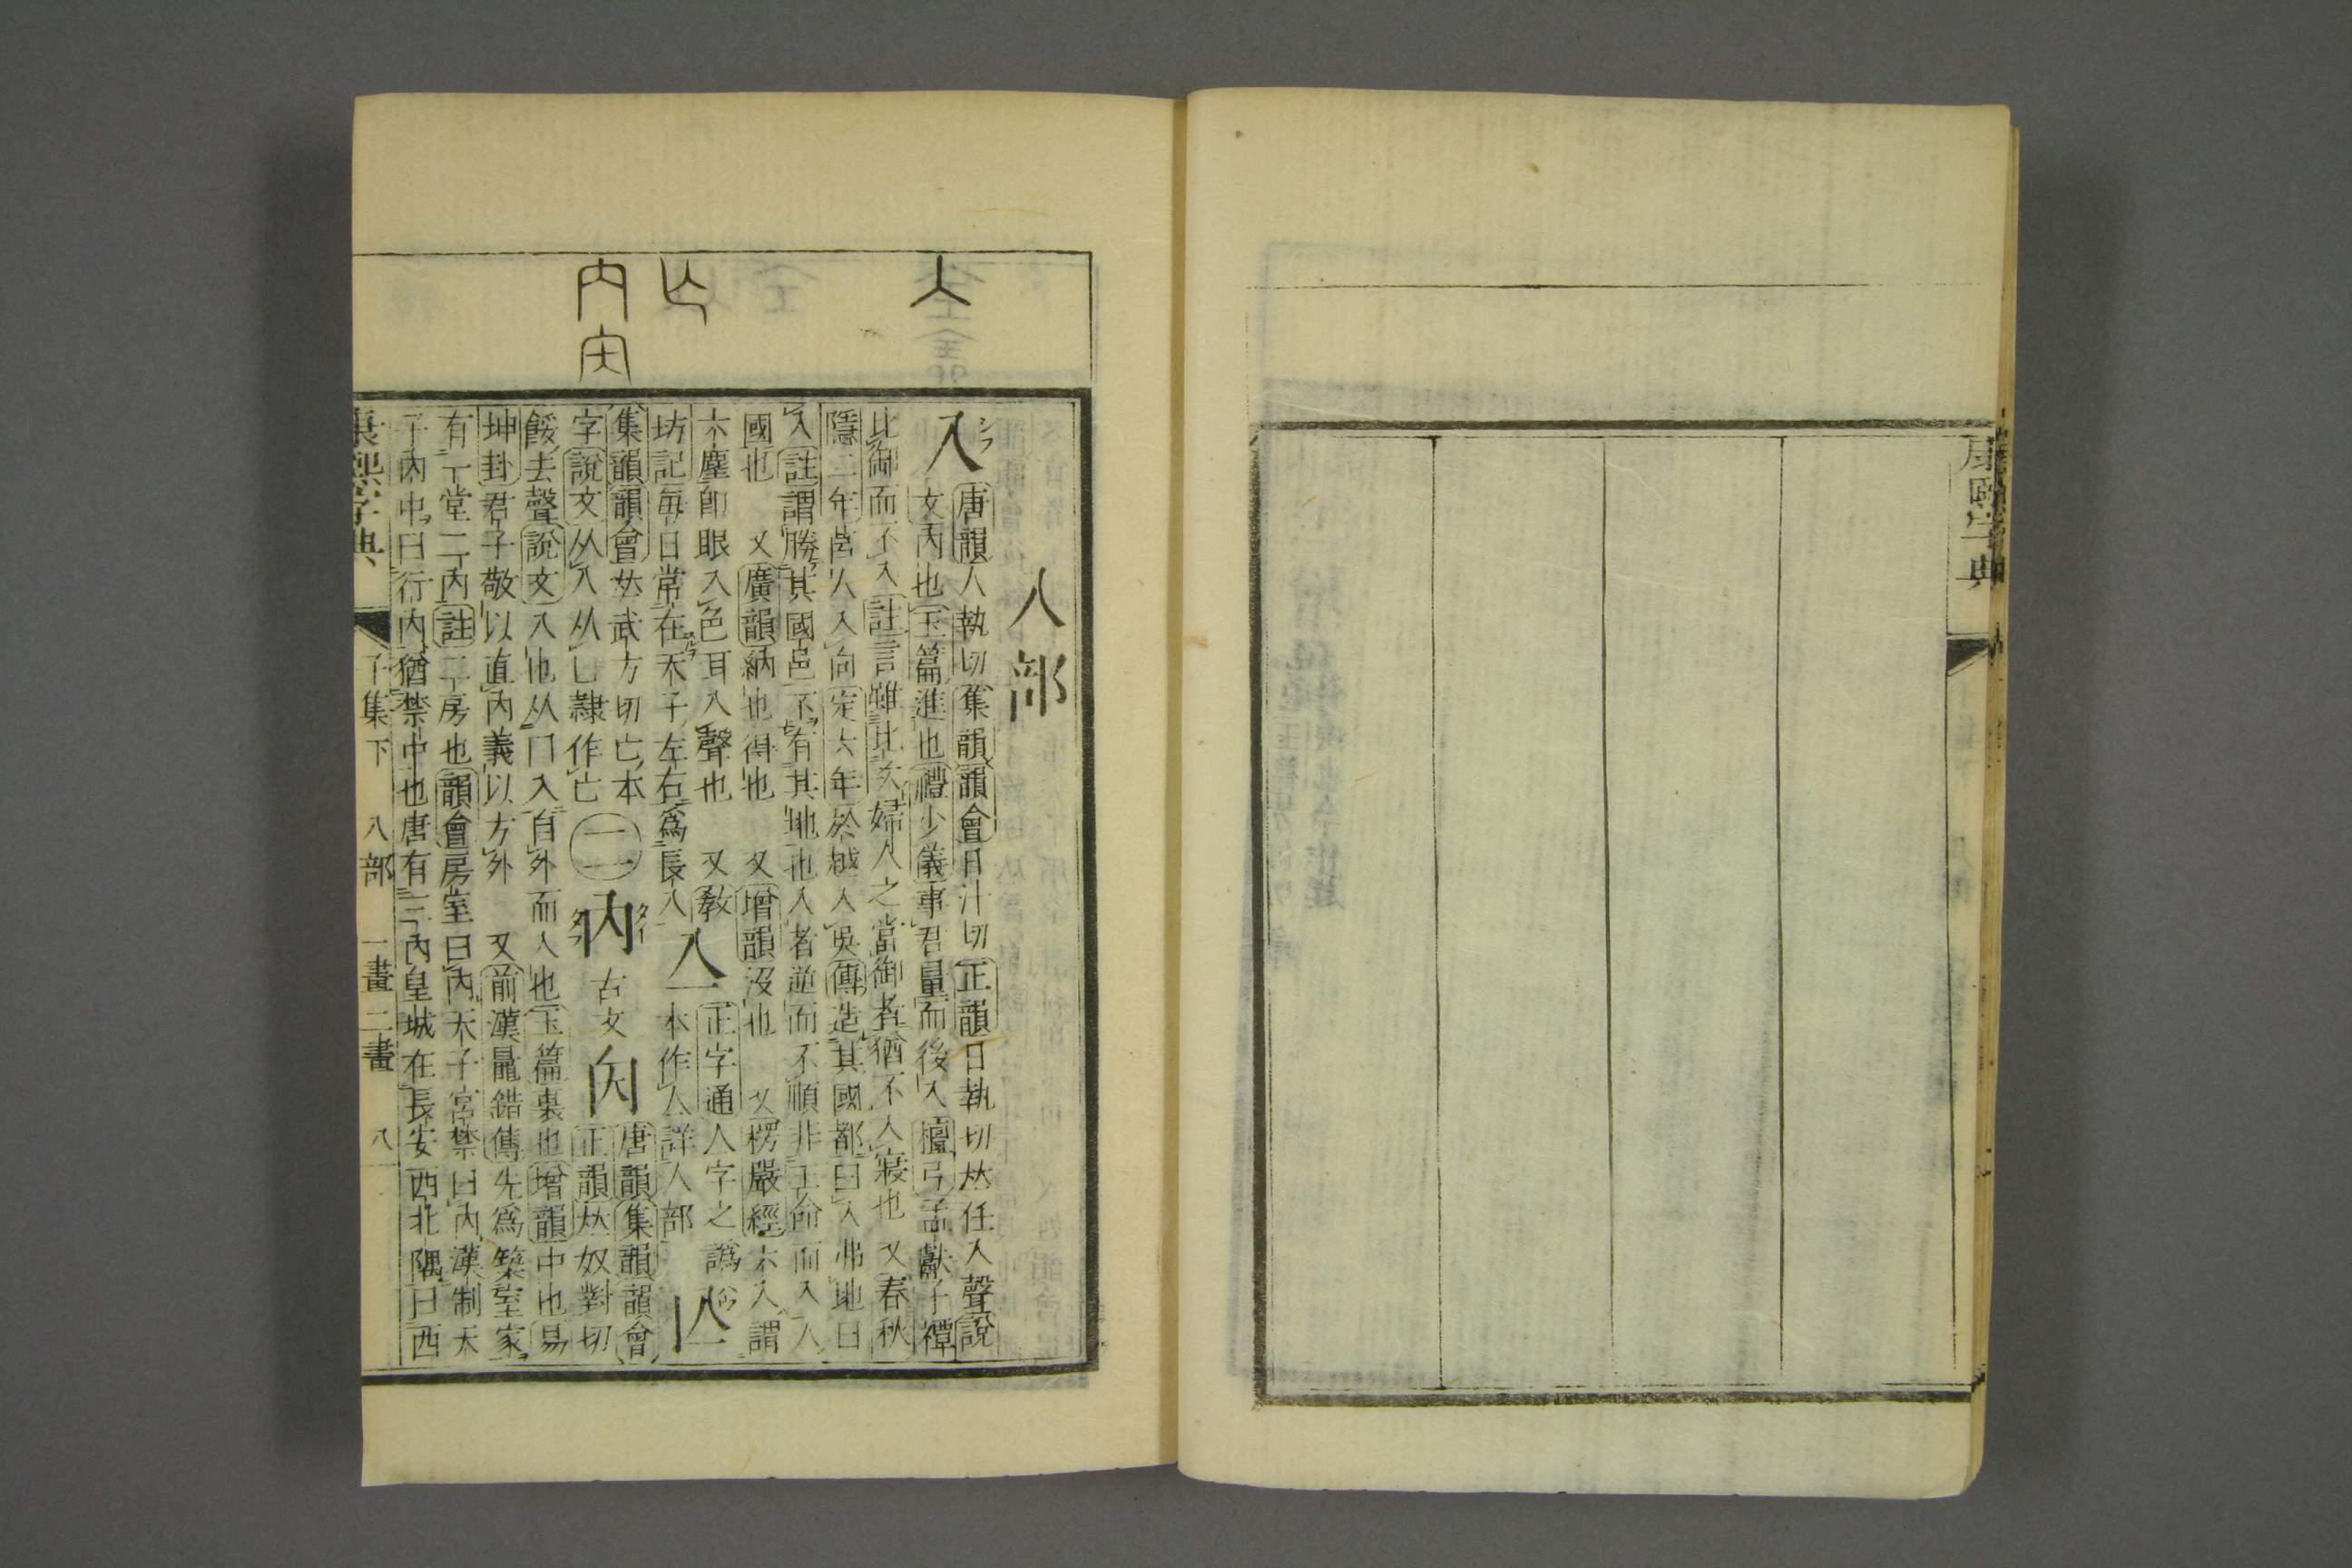 康熙字典
入部
入
唐韻人執切集韻韻會日汁切正韻日執切𠀤任入聲說
文內也玉篇進也禮少儀事君量而後入檀弓孟獻子禫
比御而不入註言雖比次婦人之當御者猶不入寢也　又春秋
隱二年莒人入向定六年於越入吳傳造其國都曰入弗地曰
入註謂勝其國邑不有其地也入者逆而不順非王命而入人
國也　又廣韻納也得也　又增韻沒也　又楞嚴經六入謂
六塵卽眼入色耳入聲也　又敎
坊記每日常在天子左右爲長入
亼
正字通人字之譌
本作亼詳人部
亾
集韻韻會𠀤武方切亡本
字說文从入从乚隸作亡
二
內
古文
唐韻集韻韻會
正韻𠀤奴對切
餒去聲說文入也从冂入自外而入也玉篇裏也增韻中也易
坤卦君子敬以直內義以方外　又前漢鼂錯傳先爲築室家
有一堂二內註二房也韻會房室曰內天子宮禁曰內漢制天
子內中曰行內猶禁中也唐有三內皇城在長安西北隅曰西
康熙字典　子集下　入部　一畫二畫　八